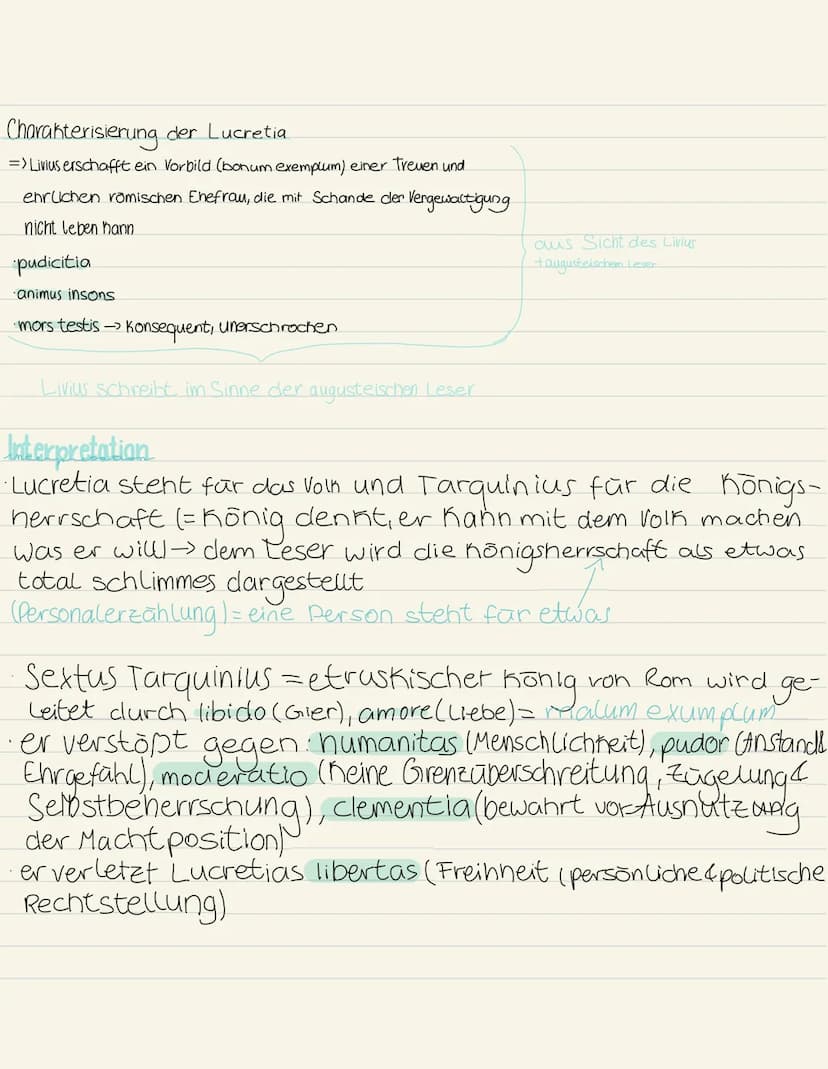 Charakterisierung der Lucretia
=> Livius erschafft ein Vorbild (bonum exemplum) einer treuen und
ehrlichen römischen Ehefrau, die mit Schande der Vergewaltigung
nicht leben kann
·pudicitia
·animus insons
·mors testis → konsequent, unerschrocken
aus Sicht des Livius
+augusteischem Leser
Livius schreibt im Sinne der augusteischen Leser
Interpretation
·Lucretia steht für das Volk und Tarquinius für die Königs-
herrschaft (= König denkt, er kann mit dem Volk machen
was er will) → dem Leser wird die Königsherrschaft als etwas
total schlimmes dargestellt
(Personalerzählung) = eine Person steht für etwas
· Sextus Tarquinius = etruskischer König von Rom wird ge-
leitet durch libido (Gier), amore (Liebe) = malum exumplum
· er verstößt gegen: humanitas (Menschlichkeit), pudor (Anstand &
Ehrgefühl), moderatio (keine Grenzüberschreitung, Zügelung &
Selbstbeherrschung), clementia (bewahrt vor Ausnutzung
der Machtposition)
· er verletzt Lucretias libertas (Freihheit (persönliche & politische
Rechtstellung)